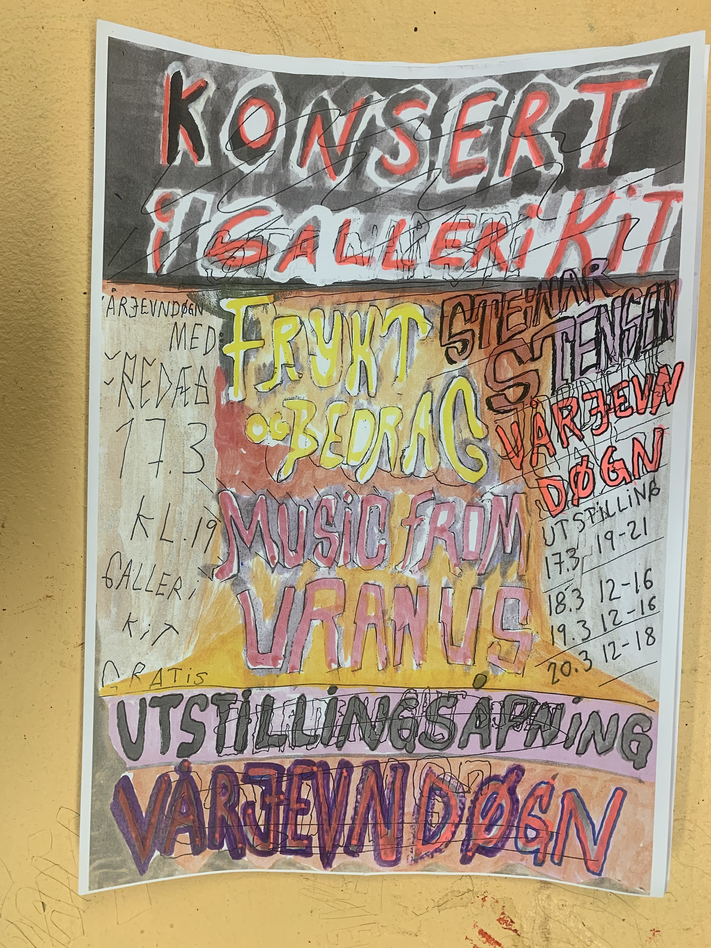 KONSERT
i GALLERi KiT
VÅRJEVNDØGN
MED
VREDÆS
17.3
KL.19
GALLERi
KiT
GRATiS
FRYKT
OG BEDRAG
MUSiC FROM
URANUS
STEiNAR
STENSEN
VÅRJEVN
DØGN
UTSTiLLiNG
17.3 19-21
18.3 12-16
19.3 12-16
20.3 12-18
UTSTiLLiNGSÅPNiNG
VÅRJEVNDØGN